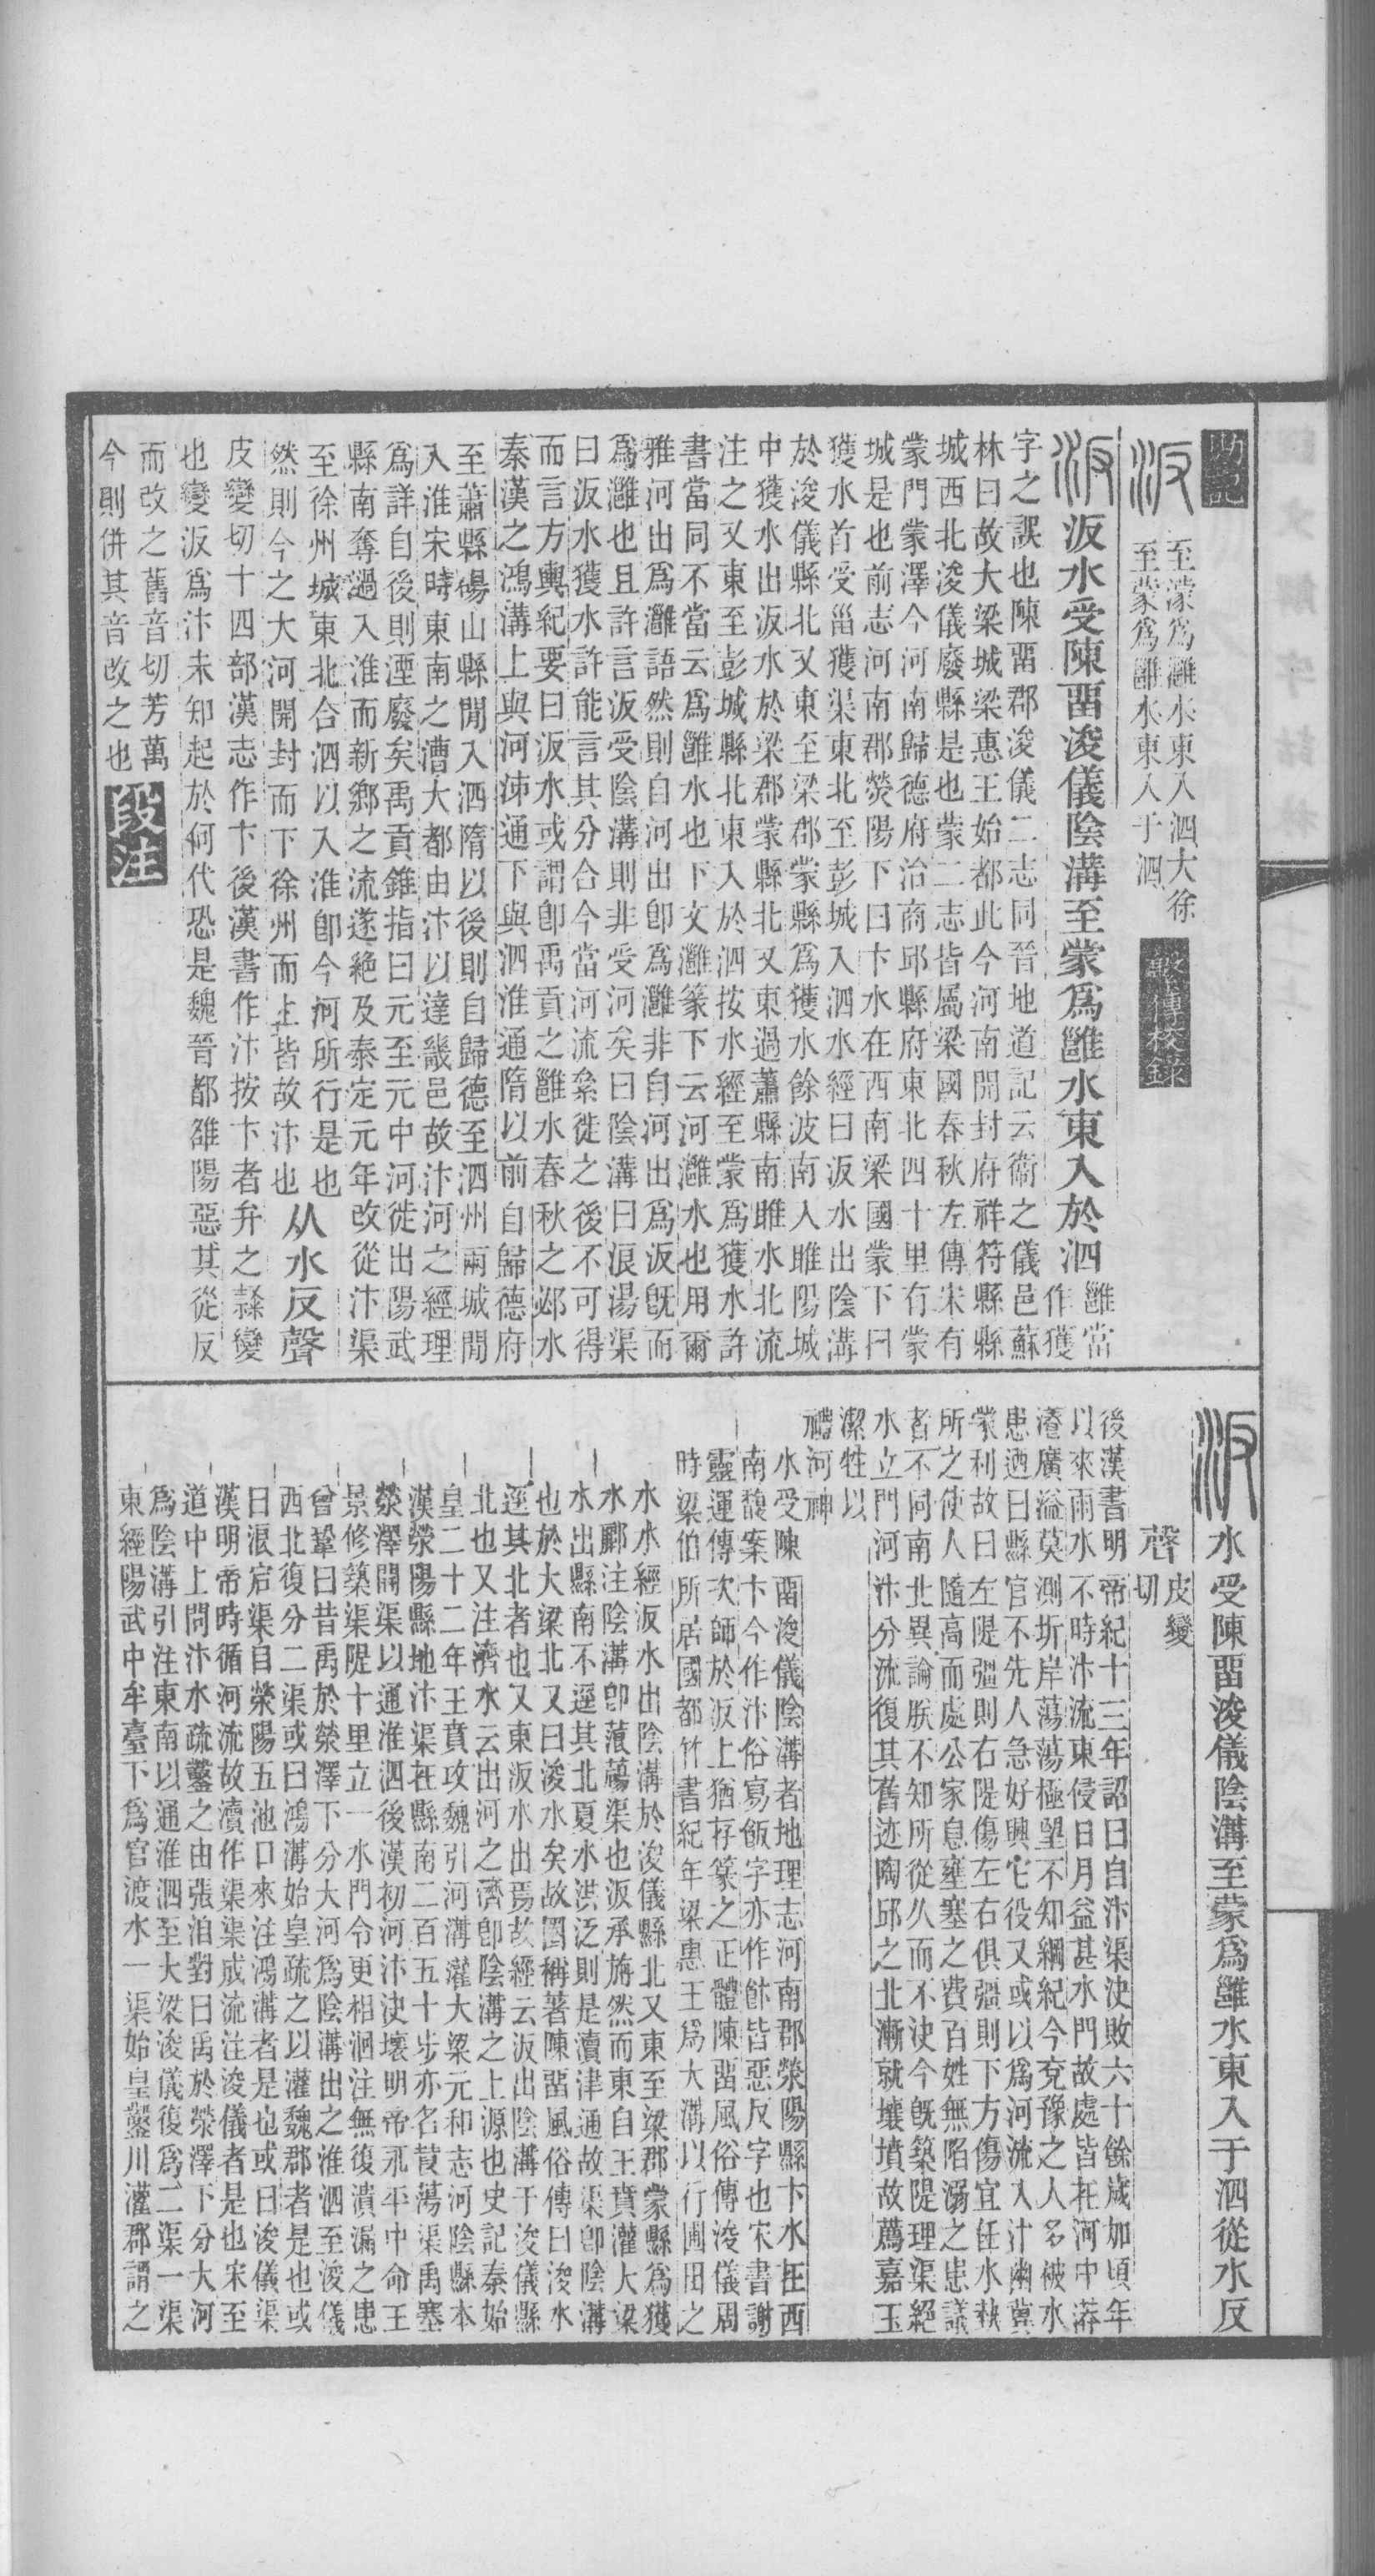 勘記
汳
至濛爲灉水東入泗大徐
至蒙爲雝水東入于泗
繫傳校錄
汳汳水受陳畱浚儀陰溝至蒙爲雝水東入於泗
雝當
作獲
字之誤也陳畱郡浚儀二志同晉地道記云衞之儀邑蘇
林曰故大梁城梁惠王始都此今河南開封府祥符縣縣
城西北浚儀廢縣是也蒙二志皆屬梁國春秋左傳宋有
蒙門蒙澤今河南歸德府治商邱縣府東北四十里有蒙
城是也前志河南郡熒陽下曰卞水在西南梁國蒙下曰
獲水首受甾獲渠東北至彭城入泗水經曰汳水出陰溝
於浚儀縣北又東至梁郡蒙縣爲獲水餘波南入睢陽城
中獲水出汳水於梁郡蒙縣北又東過蕭縣南睢水北流
注之又東至彭城縣北東入於泗按水經至蒙爲獲水許
書當同不當云爲雝水也下文灉篆下云河灉水也用爾
雅河出爲灉語然則自河出卽爲灉非自河出爲汳旣而
爲灉也且許言汳受陰溝則非受河矣曰陰溝曰浪湯渠
曰汳水獲水許能言其分合今當河流絫徙之後不可得
而言方輿紀要曰汳水或謂卽禹貢之雝水春秋之邲水
秦漢之鴻溝上與河泲通下與泗淮通隋以前自歸德府
至蕭縣碭山縣閒入泗隋以後則自歸德至泗州兩城閒
入淮宋時東南之漕大都由汴以達畿邑故汴河之經理
爲詳自後則湮廢矣禹貢錐指曰元至元中河徙出陽武
縣南奪過入淮而新鄉之流遂絶及泰定元年改從汴渠
至徐州城東北合泗以入淮卽今河所行是也
然則今之大河開封而下徐州而上皆故汴也从水反聲
皮變切十四部漢志作卞後漢書作汴按卞者弁之隸變
也變汳爲汴未知起於何代恐是魏晉都雒陽惡其從反
而改之舊音切芳萬
今則併其音改之也段注
汳水受陳畱浚儀陰溝至蒙爲雝水東入于泗從水反
聲
皮變
切
後漢書明帝紀十三年詔曰自汴渠決敗六十餘歲加頃年
以來雨水不時汴流東侵日月益甚水門故處皆在河中漭
瀁廣溢莫測圻岸蕩蕩極望不知綱紀今兗豫之人多被水
患迺曰縣官不先人急好興它役又或以爲河流入汴幽冀
蒙利故曰左隄彊則右隄傷左右俱彊則下方傷宜任水埶
所之使人隨高而處公家息壅塞之費百姓無陷溺之患議
者不同南北異論朕不知所從久而不決今旣築隄理渠絕
水立門河汴分流復其舊迹陶邱之北漸就壤墳故薦嘉玉
潔牲以
禮河神
水受陳畱浚儀陰溝者地理志河南郡滎陽縣卞水在西
南馥案卞今作汴俗寫飯字亦作飰皆惡反字也宋書謝
靈運傳次師於汳上猶存篆之正體陳畱風俗傳浚儀周
時梁伯所居國都竹書紀年梁惠王爲大溝以行圃田之
水水經汳水出陰溝於浚儀縣北又東至梁郡蒙縣爲獲
水酈注陰溝卽蒗蕩渠也汳承旃然而東自王賁灌大梁
水出縣南不逕其北夏水洪泛則是瀆津通故渠卽陰溝
也於大梁北又曰浚水矣故圈稱著陳畱風俗傳曰浚水
逕其北者也又東汳水出焉故經云汳出陰溝于浚儀縣
北也又注濟水云出河之濟卽陰溝之上源也史記秦始
皇二十二年王賁攻魏引河溝灌大梁元和志河陰縣本
漢滎陽縣地汴渠在縣南二百五十步亦名莨蕩渠禹塞
滎澤開渠以通淮泗後漢初河汴決壞明帝永平中命王
景修築渠隄十里立一水門令更相洄注無復潰漏之患
曾鞏曰昔禹於滎澤下分大河爲陰溝出之淮泗至浚儀
西北復分二渠或曰鴻溝始皇疏之以灌魏郡者是也或
曰浪宕渠自滎陽五池口來注鴻溝者是也或曰浚儀渠
漢明帝時循河流故瀆作渠渠成流注浚儀者是也宋至
道中上問汴水疏鑿之由張洎對曰禹於滎澤下分大河
爲陰溝引注東南以通淮泗至大梁浚儀復爲二渠一渠
東經陽武中牟臺下爲官渡水一渠始皇鑿川灌郡謂之